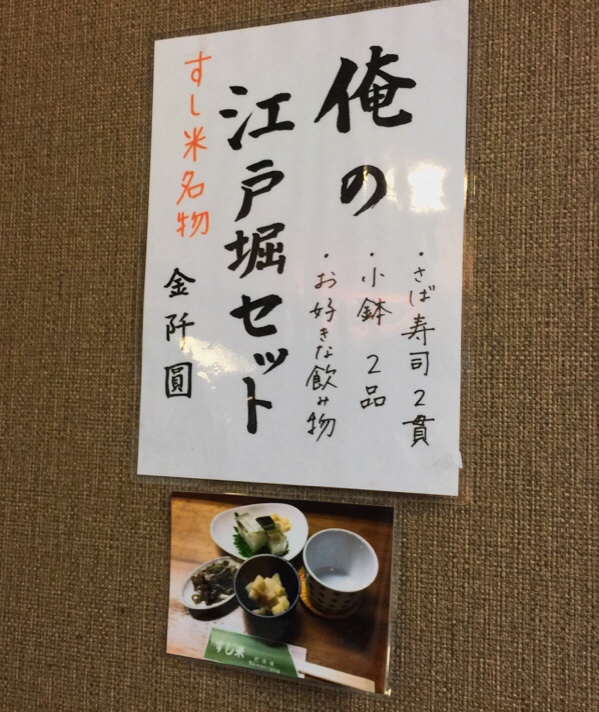 俺の
・さば寿司2貫
・小鉢 2品
・お好きな飲み物
江戸堀セット
すし米名物
金阡圓
すし米